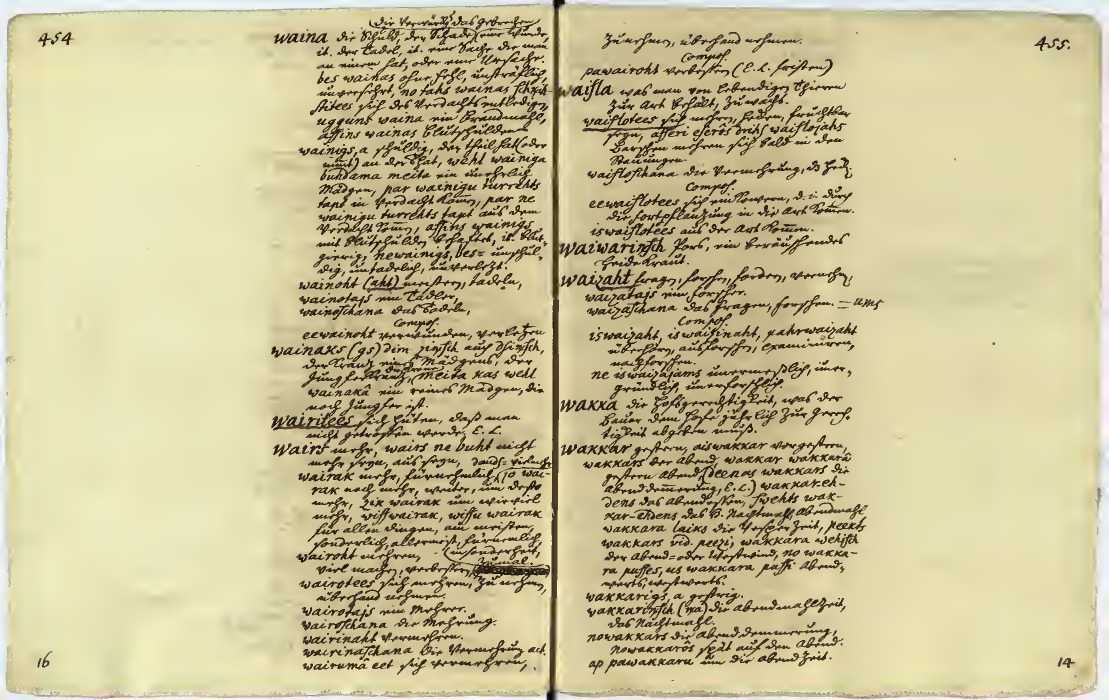 454
(die Verwirkung, das Gebrechen
waina die Schuld, der Schade, eine Wunde,
it. der Tadel, it. eine Sache die man
an einem hat, oder eine Ursache.
bes wainas ohne Fehl, unsträflich,
unversehrt, no tahs wainas
stitees sich des Verdachts entledigen,
ugguns waina ein Brandmahl,
assins wainas Blutschulden
wainigs, a schuldig, der theil hat (oder
nimt) an der That, weht wainiga
buhdama meita ein unehrlich
Mädgen, par wainigu turrehts
tapt in Verdacht kommen, par ne
wainigu turrehts tapt aus dem
Verdacht kommen, assins wainigs
mit Blutschulden behaftet, it. blut-
gierig, newainigs, bes= unschul-
dig, untadelich, unverletzt.
wainoht (aht) meistern, tadeln,
wainotajs ein Tadler,
wainoschana das Tadeln,
Compos.
eewainoht verwunden, verletzen
wainaks (gs) dim. zinsch auch Dsinsch,
der Krantz eines Mädgens, der
Jungferkrantz, meita kas wehl
wainakâ ein reines Mädgen, die
noch Jungfer ist.
wairitees sich hüten, daß man
nicht getroffen werde. E. L.
wairs mehr, wairs ne buht nicht
mehr seyn, aus seyn, dauds= vielmehr
wairak mehr, fürnehmlich, jo wai-
rak noch mehr, weiter, um desto
mehr, zik wairak um wie viel
mehr, wisswairak, wissu wairak
für allen dingen, am meisten,
sonderlich, allermeist, fürnemlich,
wairoht mehren, (insonderheit,
zumal.
viel machen, verbessern
wairotees sich mehren, zunehmen,
überhand nehmen.
wairotajs ein Mehrer.
wairoschana die Mehrung.
wairinaht vermehren.
wairinaschana die Vermehrung act.
wairumâ eet sich vermehren,
16
455.
zunehmen, überhand nehmen.
Compos.
pawairoht verbessern (E. L. fristen)
waisla was man von lebendigen Thieren
zur Art behält, Zuwachs.
waislotees sich mehren, hecken, fruchtbar
seyn, asseri eserôs drihs waislojahs
Barschen mehren sich bald in den
Stauungen.
waisloschana die Vermehrung, das Heck,
Compos.
eewaislotees sich einkoven, d. i. durch
die Fortpflanzung in die Art kommen.
iswaislotees aus der Art kommen.
waiwarinsch Pors, ein berauschendes
Heide Kraut.
waizaht fragen, forschen, fordern, versuchen,
waizatajs ein Forscher.
waizaschana das Fragen, forschen. = ums
Compos.
iswaizaht, iswaisinaht, pahrwaizaht
überhören, ausforschen, examiniren,
nachforschen.
ne iswaizajams unermeßlich, uner-
gründlich, unerforschlich.
wakka die Hofsgerechtigkeit, was der
Bauer dem Hofe jährlich zur Gerech-
tigkeit abgeben muß.
wakkar gestern, aiswakkar vorgestern,
wakkars der Abend, wakkar wakkarâ
gestern abend, deenas wakkars die
Abenddemmerung, E. L.) wakkar eh-
dens das Abendessen, swehts wak-
kar=ehdens das H. Nachtmahl, Abendmahl
wakkara laiks die Vesperzeit, peekts
wakkars vid. peezi, wakkara wehjsch
der Abend= oder Westwind, no wakka-
ra pusses, us wakkara pussi Abend-
werts, westwerts.
wakkarigs, a gestrig.
wakkarinsch (na) die abendmahlzeit,
das Nachtmahl.
nowakkars die Abend demmerung,
nowakkarôs spät auf den Abend.
ap pawakkaru um die abend Zeit.
14